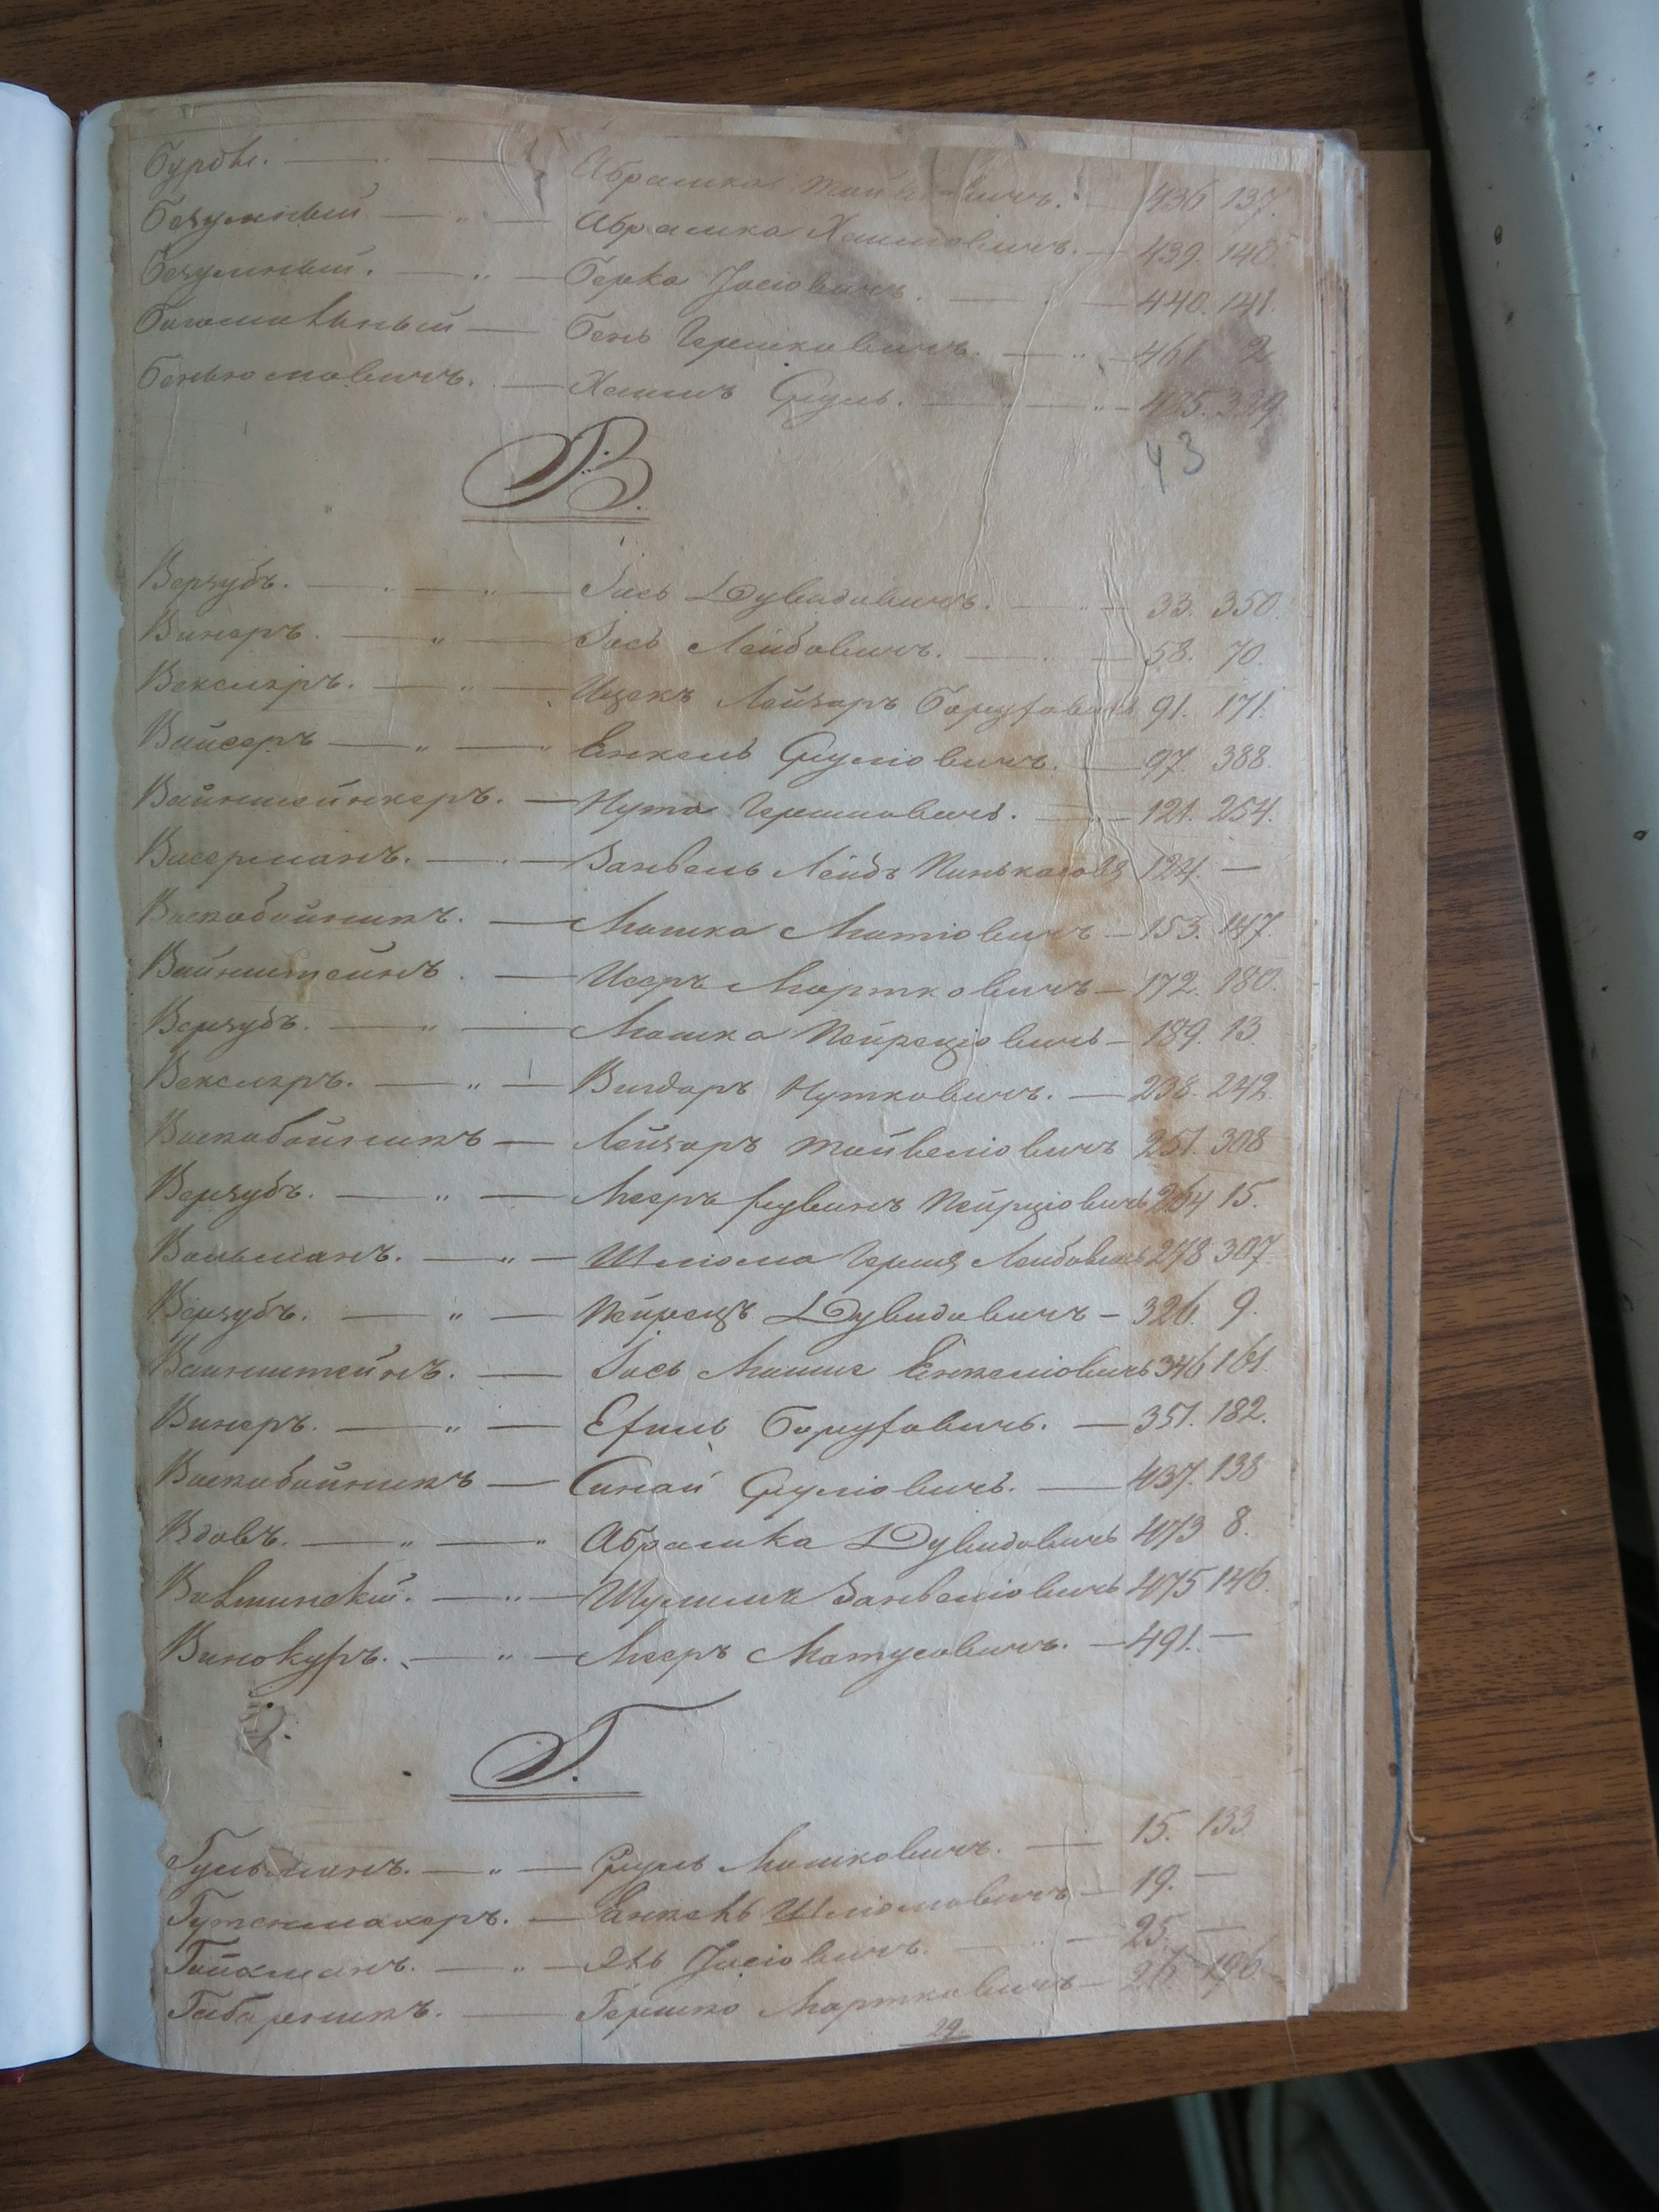 Бурдъ. — Абрамка Тайвелевичъ. 436 137.
Безумный — „ — Абрамка Хаимовичъ. — 439. 140.
Безумный. — „ — Берко Іосіовичъ. — 440. 141.
Богомольный — Бень Гершковичъ. — „ — 461. 2
Беньюмовичъ. — Хаимъ Сруль. — „ — 485. 339.
43
В.
Верзубъ. — „ — „ — Іось Дувидовичъ. — 33. 350.
Винеръ. — „ — Іось Лейбовичъ. — 58. 70.
Векслеръ. — „ — Ицекъ Лейзаръ Боруховичъ 91. 171.
Вайсеръ — „ — „ Енкель Сруліовичъ. — 97. 388.
Вайнштейнкеръ. — Нута Гершковичъ. — 121. 254.
Васерманъ. — „ — Занвель Лейбъ Пинькасовъ 124. —
Воскобойникъ. — Мошка Мотіовичъ — 153. 147.
Вайнштейнъ. — Исеръ Мортковичъ — 172. 180.
Верзубъ. — „ — Мошка Пейреціовичъ — 189. 13.
Векслеръ. — „ — Вигдоръ Нутковичъ. — 238. 242.
Воскобойникъ — Лейзаръ Тайвеліовичъ 251. 308
Верзубъ. — „ — Мееръ Рувинъ Пейреціовичъ 264 15.
Вольманъ. — „ — Шліома Герша Лейбовичъ 278 307.
Верзубъ. — „ — Пейрецъ Дувидовичъ — 326. 9.
Вайнштейнъ. — Іось Мошко Енкеліовичъ 346 161.
Винеръ. — „ — Ехиль Боруховичъ. — 351. 182.
Воскобойникъ — Синай Сруліовичъ. — 437. 138
Вдовъ. — „ — „ Абрамка Дувидовичъ 473 8.
— „ — Шулимъ Занвеліовичъ 475 146.
Винокуръ. — „ — Мееръ Мотусовичъ. — 491. —
Г.
Гульманъ. — „ — Сруль Мошковичъ. — 15. 133
Гутенмахеръ. — Енкель Шліомовичъ — 19. —
Гойхманъ. — „ — Эль Іосіовичъ. — 25. —
Гершко Мортковичъ — 26. 196.
29.